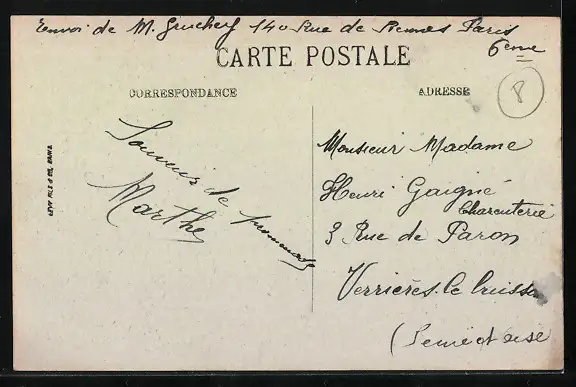 Envoi de M. Gruchery 140 Rue de Rennes Paris
6ème
CARTE POSTALE
CORRESPONDANCE
ADRESSE
8
Souvenir de promenade
Marthe
Monsieur Madame
Henri Gaigné
Charcuterie
3 Rue de Paron
Verrières le Buisson
(Seine et oise
LEVY FILS & CIE, PARIS